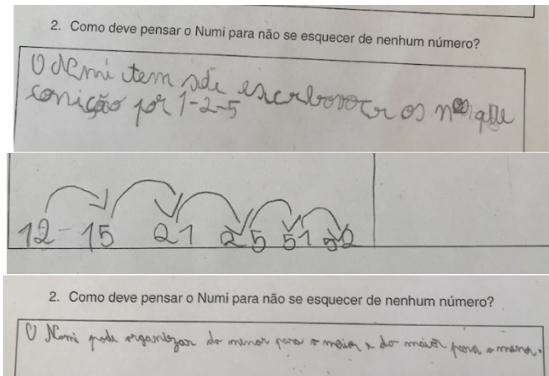 2. Como deve pensar o Numi para não se esquecer de nenhum número?
O Numi tem de os nºs que
por 1-2-5
12 - 15 21 25 51 52
2. Como deve pensar o Numi para não se esquecer de nenhum número?
O Nomi pode organizar do menor para o maior e do maior para o menor.